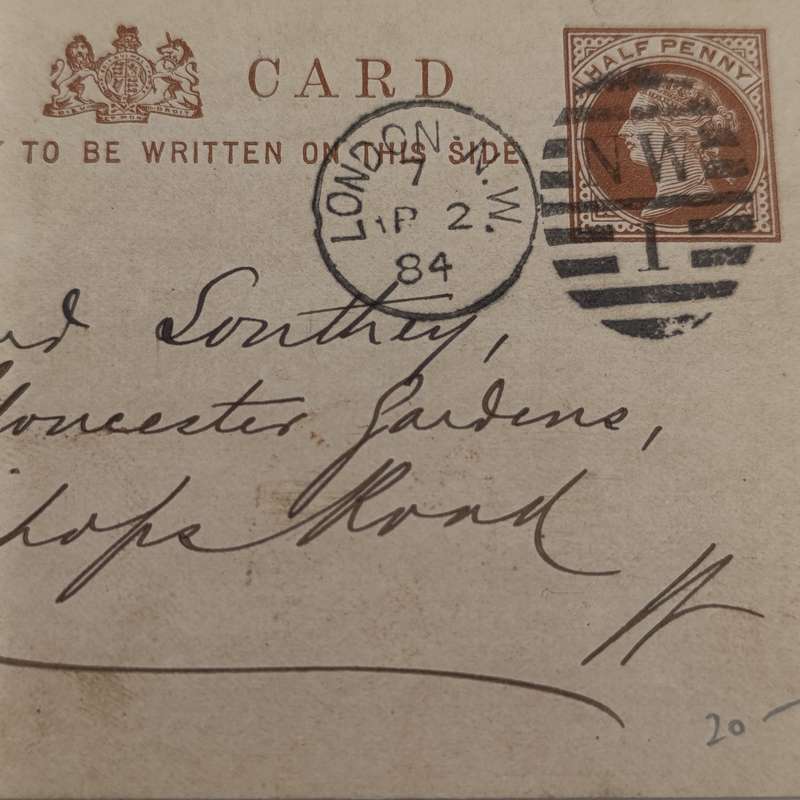 CARD
HALF PENNY
TO BE WRITTEN ON THIS SIDE
LONDON. N.W.
7
AP 2.
84
NW
1
Southey,
Gloucester Gardens,
Road
W
20-